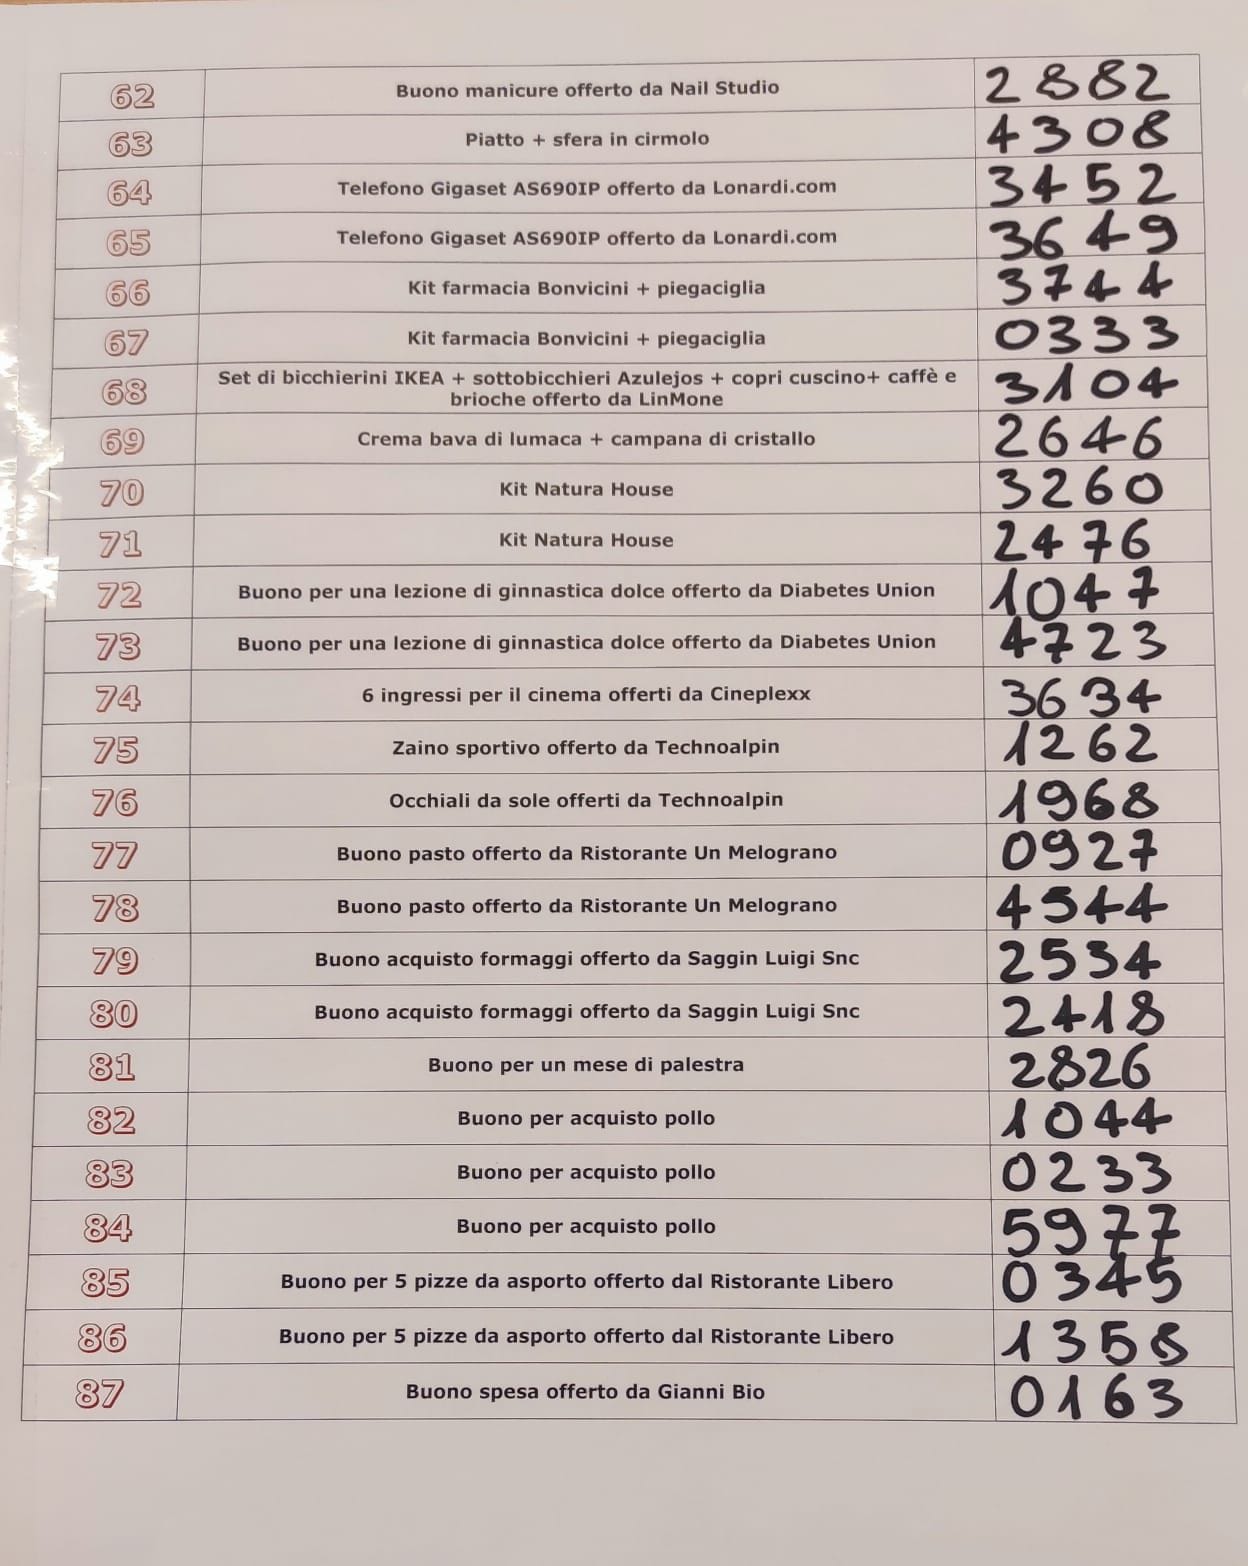 62 Buono manicure offerto da Nail Studio 2882
63 Piatto + sfera in cirmolo 4308
64 Telefono Gigaset AS690IP offerto da Lonardi.com 3452
65 Telefono Gigaset AS690IP offerto da Lonardi.com 3649
66 Kit farmacia Bonvicini + piegaciglia 3744
67 Kit farmacia Bonvicini + piegaciglia 0333
68 Set di bicchierini IKEA + sottobicchieri Azulejos + copri cuscino+ caffè e
brioche offerto da LinMone 3104
69 Crema bava di lumaca + campana di cristallo 2646
70 Kit Natura House 3260
71 Kit Natura House 2476
72 Buono per una lezione di ginnastica dolce offerto da Diabetes Union 1047
73 Buono per una lezione di ginnastica dolce offerto da Diabetes Union 4723
74 6 ingressi per il cinema offerti da Cineplexx 3634
75 Zaino sportivo offerto da Technoalpin 1262
76 Occhiali da sole offerti da Technoalpin 1968
77 Buono pasto offerto da Ristorante Un Melograno 0927
78 Buono pasto offerto da Ristorante Un Melograno 4544
79 Buono acquisto formaggi offerto da Saggin Luigi Snc 2534
80 Buono acquisto formaggi offerto da Saggin Luigi Snc 2418
81 Buono per un mese di palestra 2826
82 Buono per acquisto pollo 1044
83 Buono per acquisto pollo 0233
84 Buono per acquisto pollo 5977
85 Buono per 5 pizze da asporto offerto dal Ristorante Libero 0345
86 Buono per 5 pizze da asporto offerto dal Ristorante Libero 1358
87 Buono spesa offerto da Gianni Bio 0163